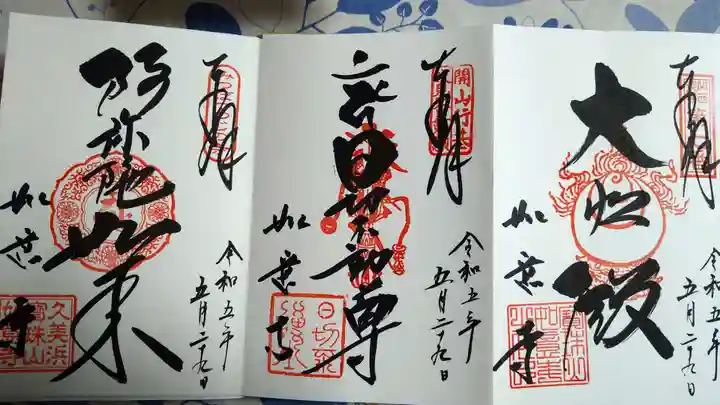 奉拝
大悲殿
令和五年
五月二十九日
如意寺
寶珠山
奉拝
開山行基
日切不動尊
令和五年
五月二十九日
如意寺
日切不
奉拝
阿弥陀如来
令和五年
五月二十九日
如意寺
久美浜
寳珠山